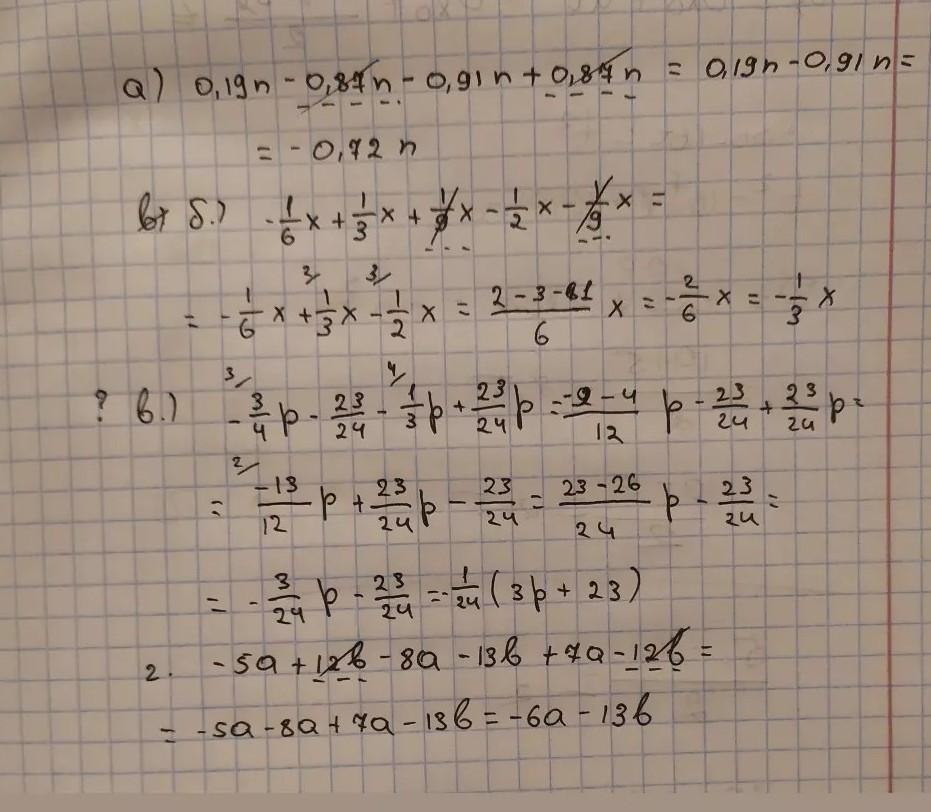 а) 0,19n - 0,87n - 0,91n + 0,87n = 0,19n - 0,91n =
= - 0,72 n
б.) -1/6 x + 1/3 x + 1/9 x - 1/2 x - 1/9 x =
= - 1/6 x + 1/3 x - 1/2 x = (2 - 3 - 1)/6 x = - 2/6 x = - 1/3 x
? в.) - 3/4 p - 23/24 - 1/3 p + 23/24 p = (-9 - 4)/12 p - 23/24 + 23/24 p =
= -13/12 p + 23/24 p - 23/24 = (23 - 26)/24 p - 23/24 =
= - 3/24 p - 23/24 = - 1/24 (3p + 23)
2. -5a + 12b - 8a - 13b + 7a - 12b =
= -5a - 8a + 7a - 13b = -6a - 13b